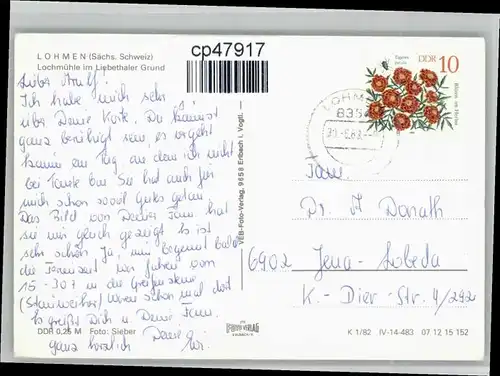 LOHMEN (Sächs. Schweiz)
Lochmühle im Liebethaler Grund
cp47917
Lieber Arnulf!
Ich habe mich sehr
über Deine Karte. Du kannst
ganz beruhigt sein, es vergeht
kaum ein Tag an dem ich nicht
bei Tante bin Sie hat auch für
mich schon soviel Gutes getan.
Das Bild von Deiner Fam. hat
sie mir gleich gezeigt Es ist
sehr schön Ja, nun beginnt bald
die Ferienzeit wir fahren vom
15.-30.7 in die
waren schon mal dort
Es grüßt Dich u Deine Fam.
ganz herzlich Deine
DDR 0,25 M Foto: Sieber
VEB-Foto-Verlag, 9658 Erlbach i. Vogtl.
FOTO VERLAG
ERLBACH
Tagetes
patula
DDR 10
Blumen im Herbst
LOHMEN
8353
Fam.
Dr. A Donath
6902 Jena-Lobeda
K.-Dier-Str. 4/242
K 1/82 IV-14-483 07 12 15 152